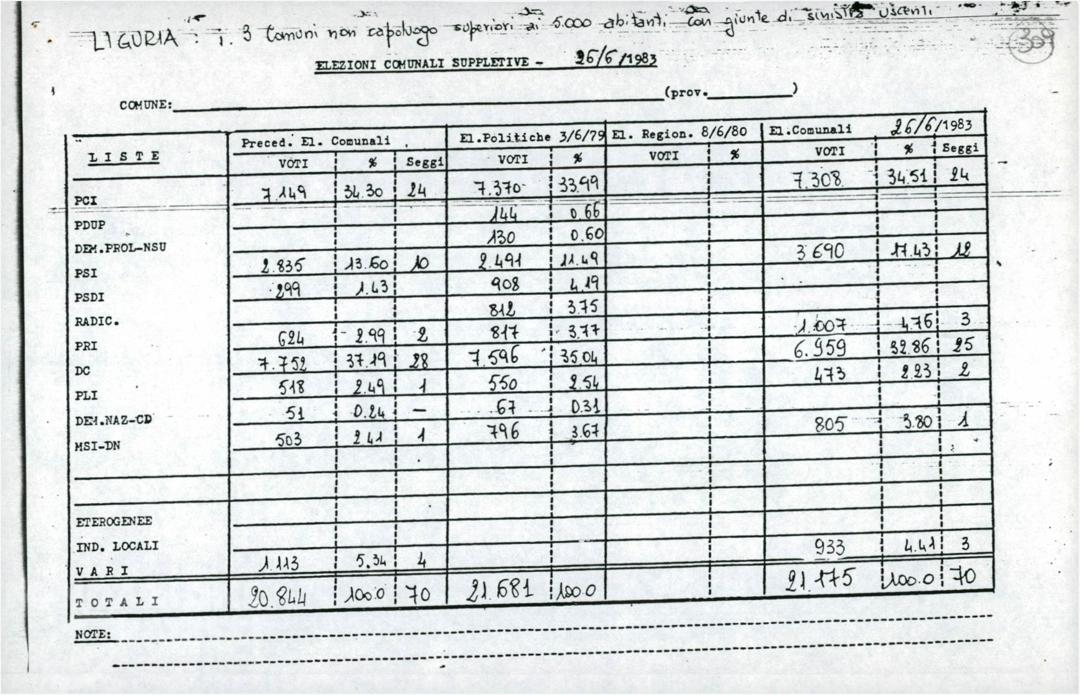 LIGURIA : i 3 Comuni non capoluogo superiori ai 5.000 abitanti con giunte di sinistra uscenti
309
ELEZIONI COMUNALI SUPPLETIVE - 26/6/1983
COMUNE: (prov. )
LISTE Preced. El. Comunali El.Politiche 3/6/79 El. Region. 8/6/80 El.Comunali 26/6/1983
VOTI % Seggi VOTI % VOTI % VOTI % Seggi
PCI 7.149 34.30 24 7.370 33.99 7.308 34.51 24
PDUP 144 0.66
DEM.PROL-NSU 130 0.60
PSI 2.835 13.60 10 2.491 11.49 3690 17.43 12
PSDI 299 1.43 908 4.19
RADIC. 812 3.75
PRI 624 2.99 2 817 3.77 1.007 4.76 3
DC 7.752 37.19 28 7.596 35.04 6.959 32.86 25
PLI 518 2.49 1 550 2.54 473 2.23 2
DEM.NAZ-CD 51 0.24 — 67 0.31
MSI-DN 503 2.41 1 796 3.67 805 3.80 1
ETEROGENEE
IND. LOCALI
VARI 1.113 5.34 4 933 4.41 3
TOTALI 20.844 100.0 70 21.681 100.0 21.175 100.0 70
NOTE: